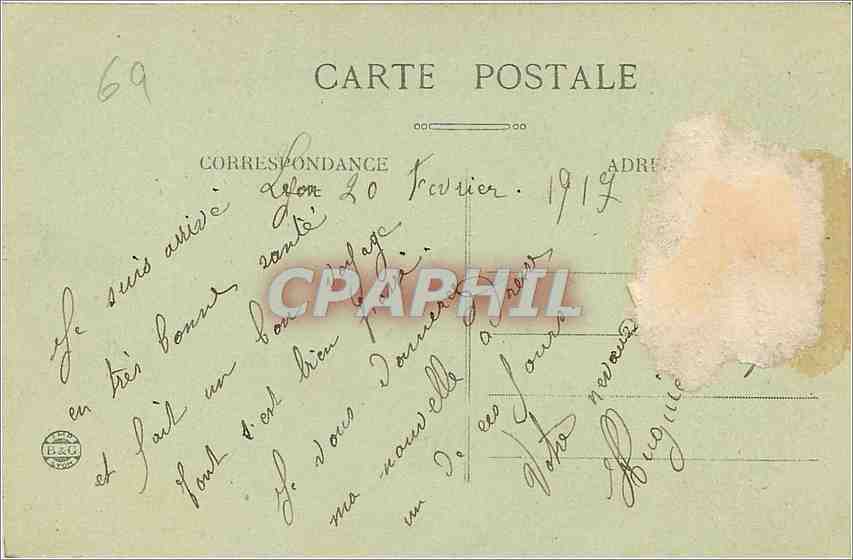 69
CARTE POSTALE
CORRESPONDANCE
ADRE
Lyon 20 Fevrier. 1917
Je suis arrivé
en très bonne santé
et fait un bon voyage
tout s'est bien passé.
Je vous donnerez
ma nouvelle adresse
un de ces jours
Votre neveu
Huguie
CPAPHIL
IMP
B&G
LYON